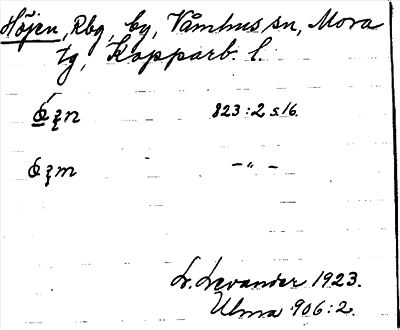 Höjen, Rbg, by, Våmhus sn, Mora
tg, Kopparb. l.
823:2 s. 16.
– " –
L. Levander 1923.
Ulma 906:2.